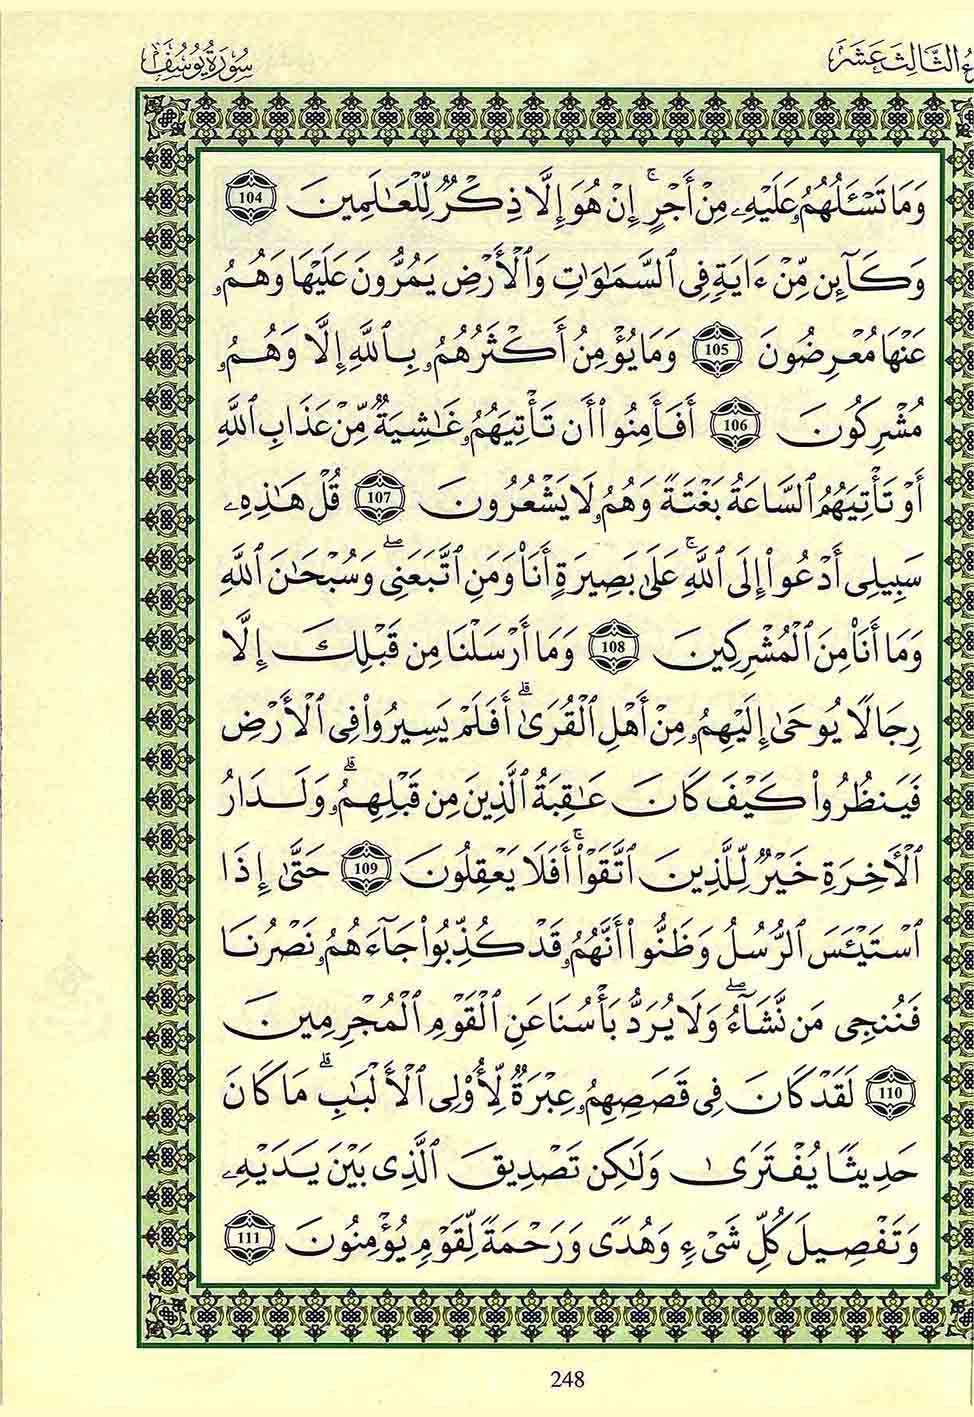 سُورَةُ يُوسُفَ
ءُ الثَّالِثَ عَشَرَ
وَمَا تَسْـَٔلُهُمُۥ عَلَيْهِۦ مِنْ أَجْرٍۚ إِنْ هُوَ إِلَّا ذِكْرٌ لِّلْعَـٰلَمِينَ 104
وَكَآئِن مِّنْ ءَايَةٍ فِى ٱلسَّمَـٰوَٰتِ وَٱلْأَرْضِ يَمُرُّونَ عَلَيْهَا وَهُمُۥ
عَنْهَا مُعْرِضُونَ 105 وَمَا يُؤْمِنُ أَكْثَرُهُمُۥ بِٱللَّهِ إِلَّا وَهُمُۥ
مُشْرِكُونَ 106 أَفَأَمِنُوٓا۟ أَن تَأْتِيَهُمُۥ غَـٰشِيَةٌ مِّنْ عَذَابِ ٱللَّهِ
أَوْ تَأْتِيَهُمُ ٱلسَّاعَةُ بَغْتَةً وَهُمُۥ لَا يَشْعُرُونَ 107 قُلْ هَـٰذِهِۦ
سَبِيلِى أَدْعُوا۟ إِلَى ٱللَّهِۚ عَلَىٰ بَصِيرَةٍ أَنَا۠ وَمَنِ ٱتَّبَعَنِىۖ وَسُبْحَـٰنَ ٱللَّهِ
وَمَا أَنَا۠ مِنَ ٱلْمُشْرِكِينَ 108 وَمَا أَرْسَلْنَا مِن قَبْلِكَ إِلَّا
رِجَالًا يُوحَىٰ إِلَيْهِمُۥ مِنْ أَهْلِ ٱلْقُرَىٰۗ أَفَلَمْ يَسِيرُوا۟ فِى ٱلْأَرْضِ
فَيَنظُرُوا۟ كَيْفَ كَانَ عَـٰقِبَةُ ٱلَّذِينَ مِن قَبْلِهِمُۥۗ وَلَدَارُ
ٱلْأَخِرَةِ خَيْرٌ لِّلَّذِينَ ٱتَّقَوْا۟ۚ أَفَلَا يَعْقِلُونَ 109 حَتَّىٰ إِذَا
ٱسْتَيْـَٔسَ ٱلرُّسُلُ وَظَنُّوا۟ أَنَّهُمُۥ قَدْ كُذِّبُوا۟ جَآءَهُمُۥ نَصْرُنَا
فَنُنجِى مَن نَّشَآءُۖ وَلَا يُرَدُّ بَأْسُنَا عَنِ ٱلْقَوْمِ ٱلْمُجْرِمِينَ
110 لَقَدْ كَانَ فِى قَصَصِهِمُۥ عِبْرَةٌ لِّأُو۟لِى ٱلْأَلْبَـٰبِۗ مَا كَانَ
حَدِيثًا يُفْتَرَىٰ وَلَـٰكِن تَصْدِيقَ ٱلَّذِى بَيْنَ يَدَيْهِۦ
وَتَفْصِيلَ كُلِّ شَىْءٍ وَهُدًى وَرَحْمَةً لِّقَوْمٍ يُؤْمِنُونَ 111
248